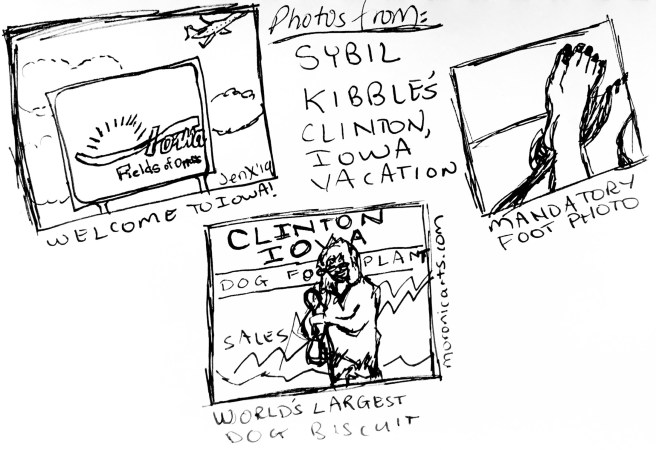 Photos from:
SYBIL
KIBBLE'S
CLINTON,
IOWA
VACATION
Iowa
Fields of Opps
JenX'19
WELCOME TO IOWA!
MANDATORY
FOOT PHOTO
CLINTON
IOWA
DOG FO PLANT
SALES
moronicarts.com
WORLD'S LARGEST
DOG BISCUIT